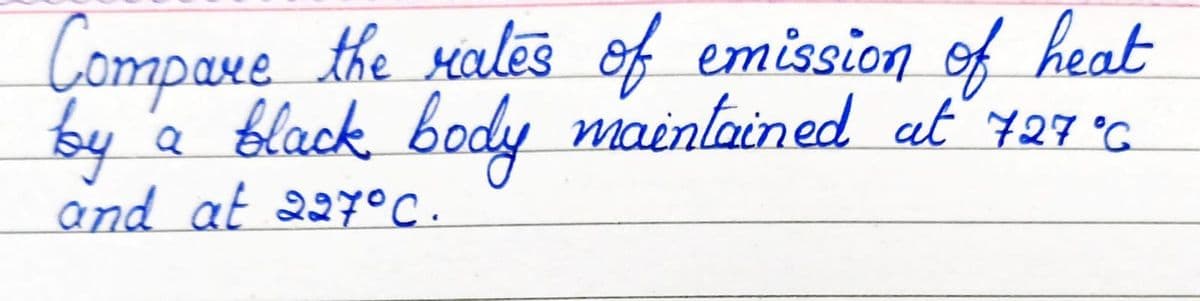 Compare the rates of emission of heat
by a black body maintained at 727 °C
and at 227°C.